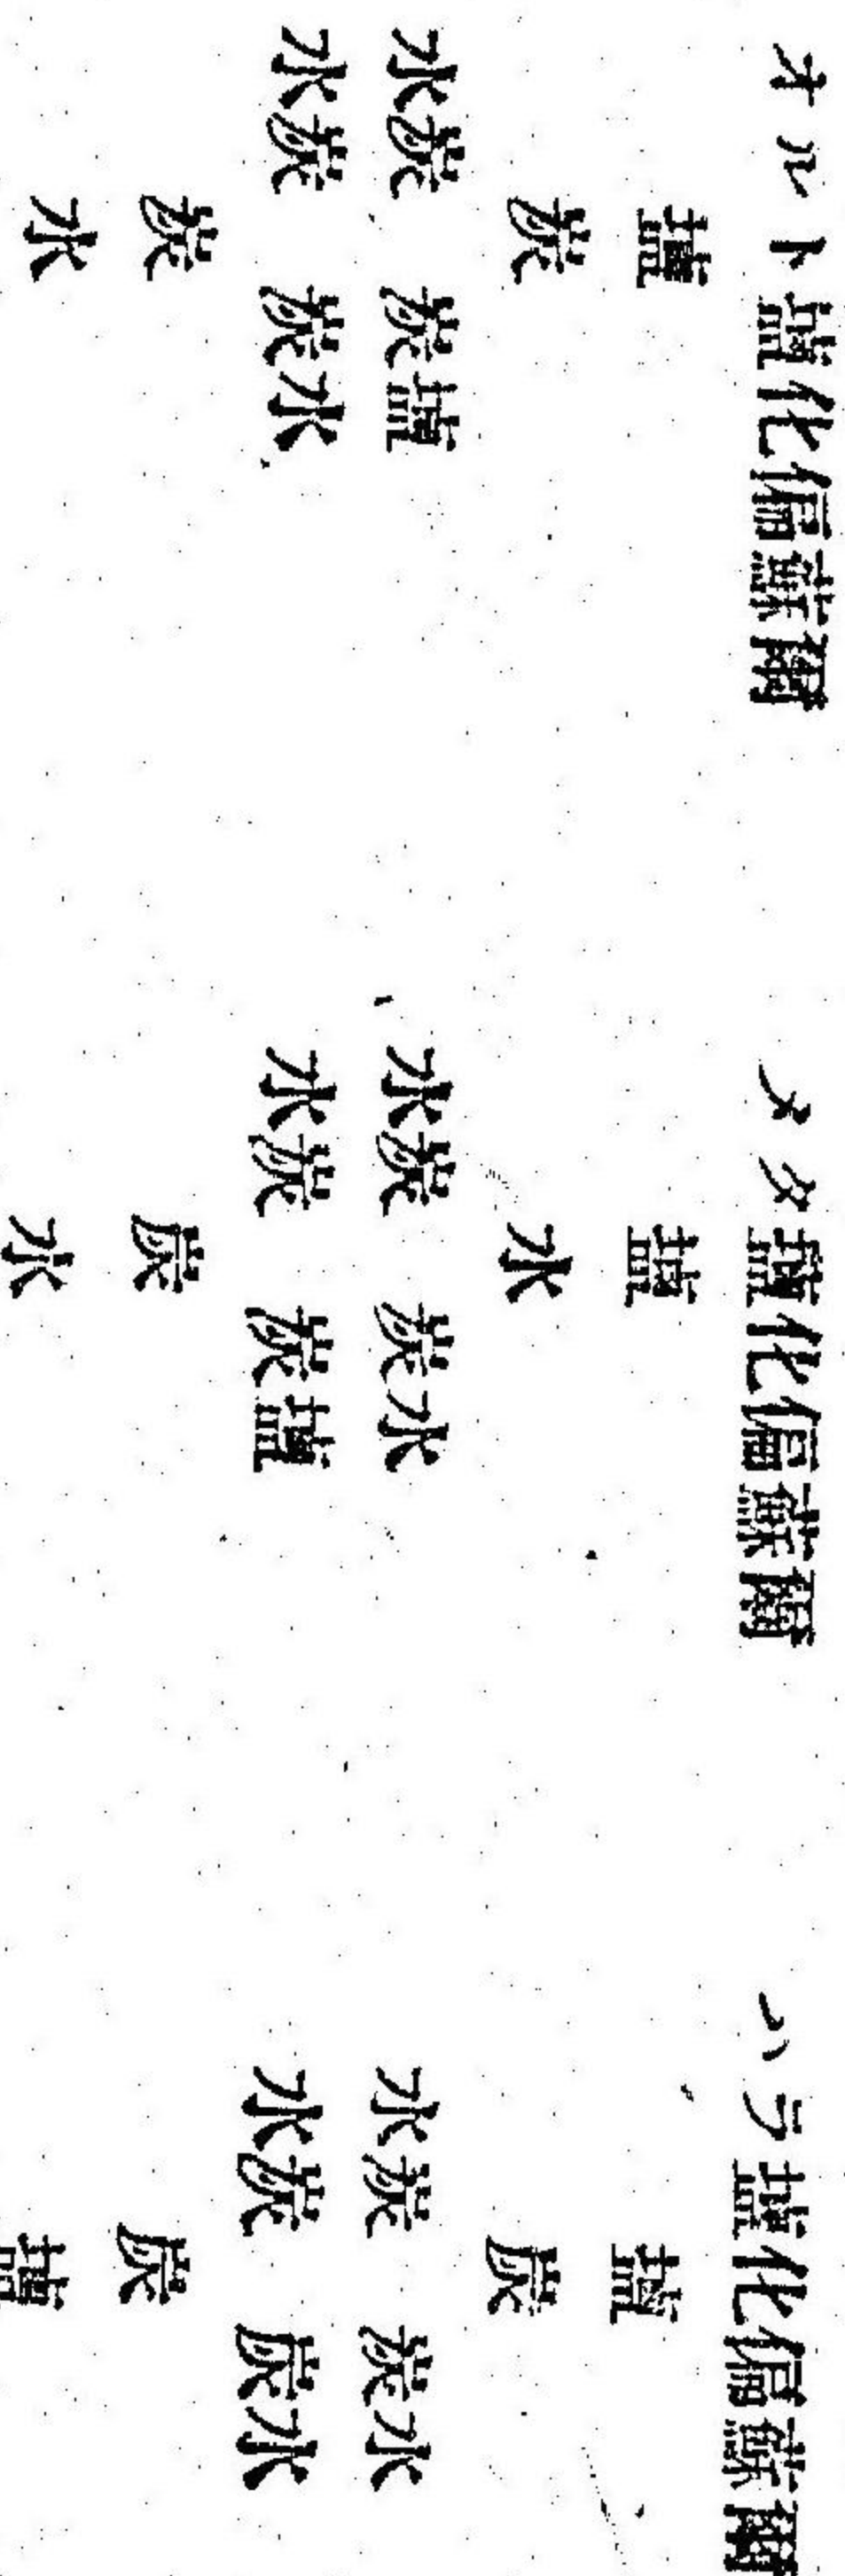 オルト塩化偏蘇爾
塩
炭
水炭 炭塩
水炭 炭水
炭
水
メタ塩化偏蘇爾
塩
水
水炭 炭水
水炭 炭塩
炭
水
ハラ塩化偏蘇爾
塩
炭
水炭 炭水
水炭 炭水
炭
塩